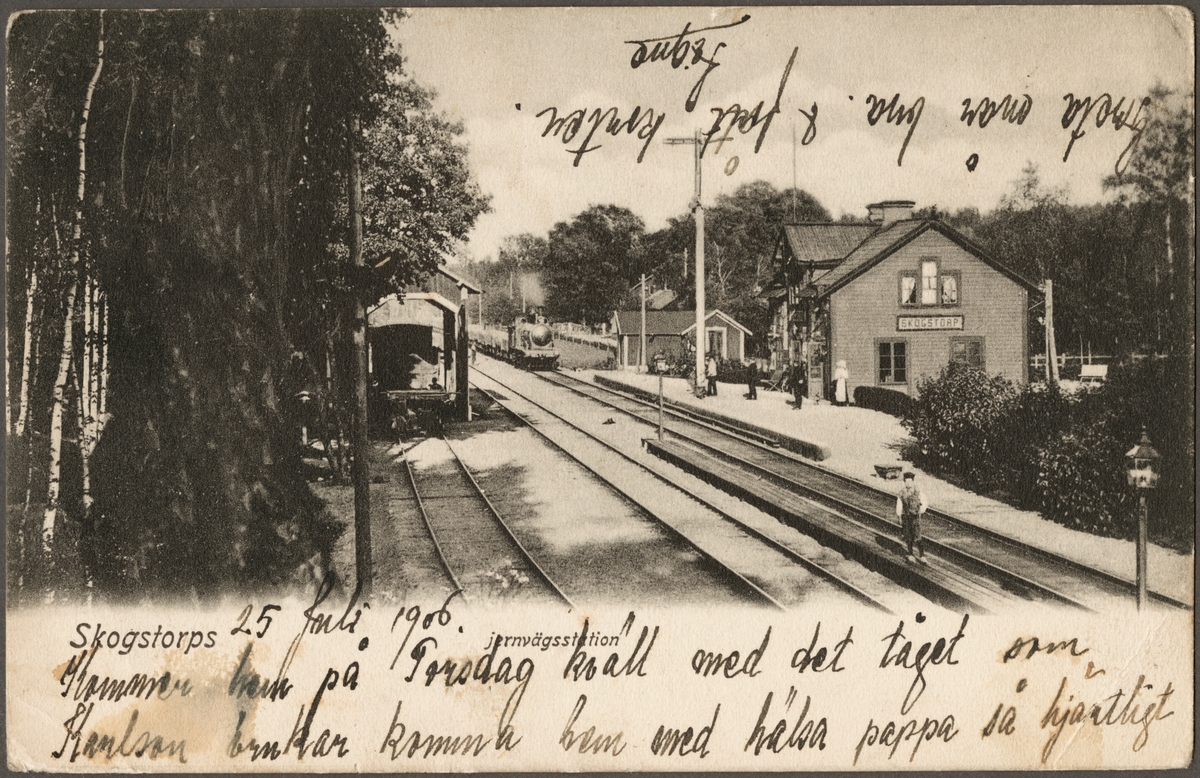 SKOGSTORP
Skogstorps jernvägsstation
25 Juli 1906.
Kommer hem på Torsdag kväll med det tåget som
Karlson brukar komma hem med hälsa pappa så hjärtligt
mår bra. & fått korten.
Signe